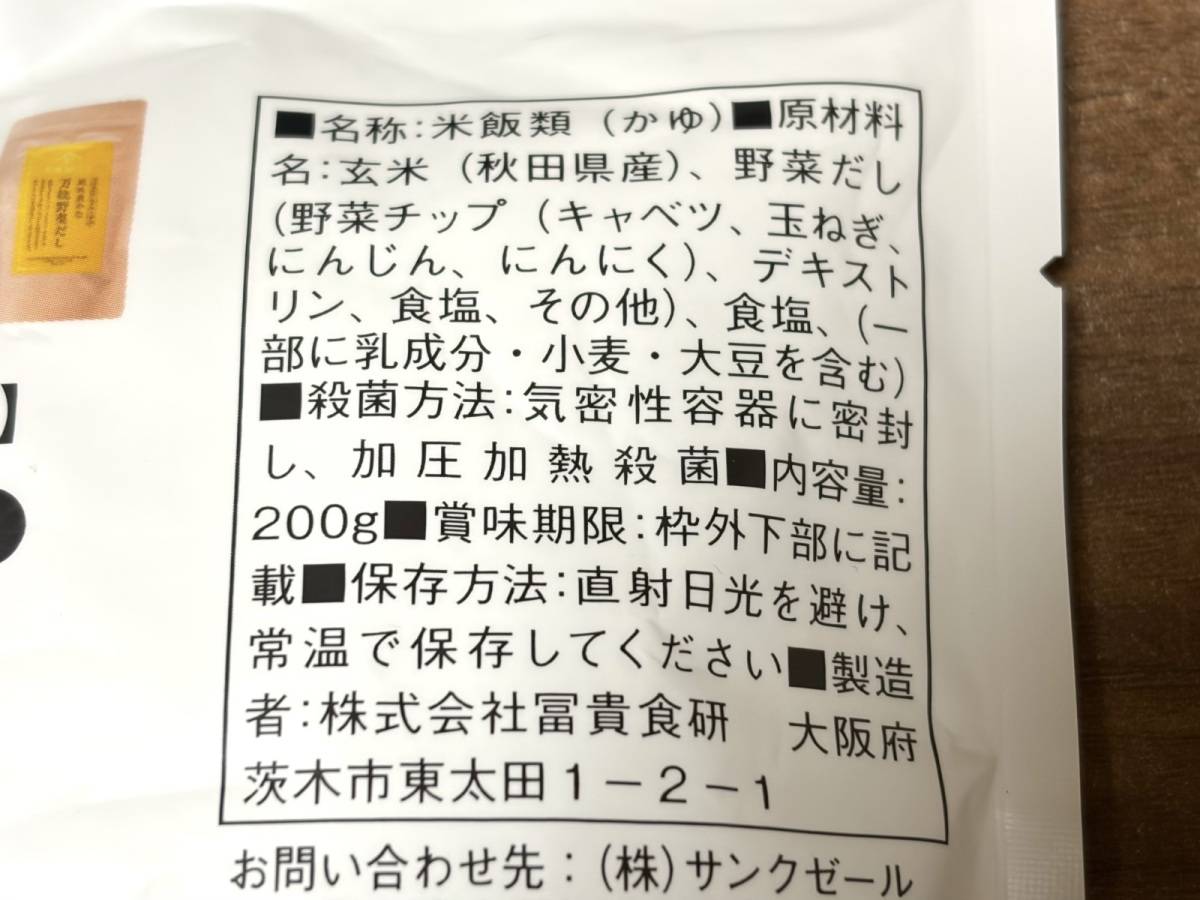 ■名称:米飯類(かゆ)■原材料
名:玄米(秋田県産)、野菜だし
(野菜チップ(キャベツ、玉ねぎ、
にんじん、にんにく)、デキスト
リン、食塩、その他)、食塩、(一
部に乳成分・小麦・大豆を含む)
■殺菌方法:気密性容器に密封
し、加圧加熱殺菌■内容量:
200g■賞味期限:枠外下部に記
載■保存方法:直射日光を避け、
常温で保存してください■製造
者:株式会社冨貴食研 大阪府
茨木市東太田1-2-1
お問い合わせ先:(株)サンクゼール
万能野菜だし